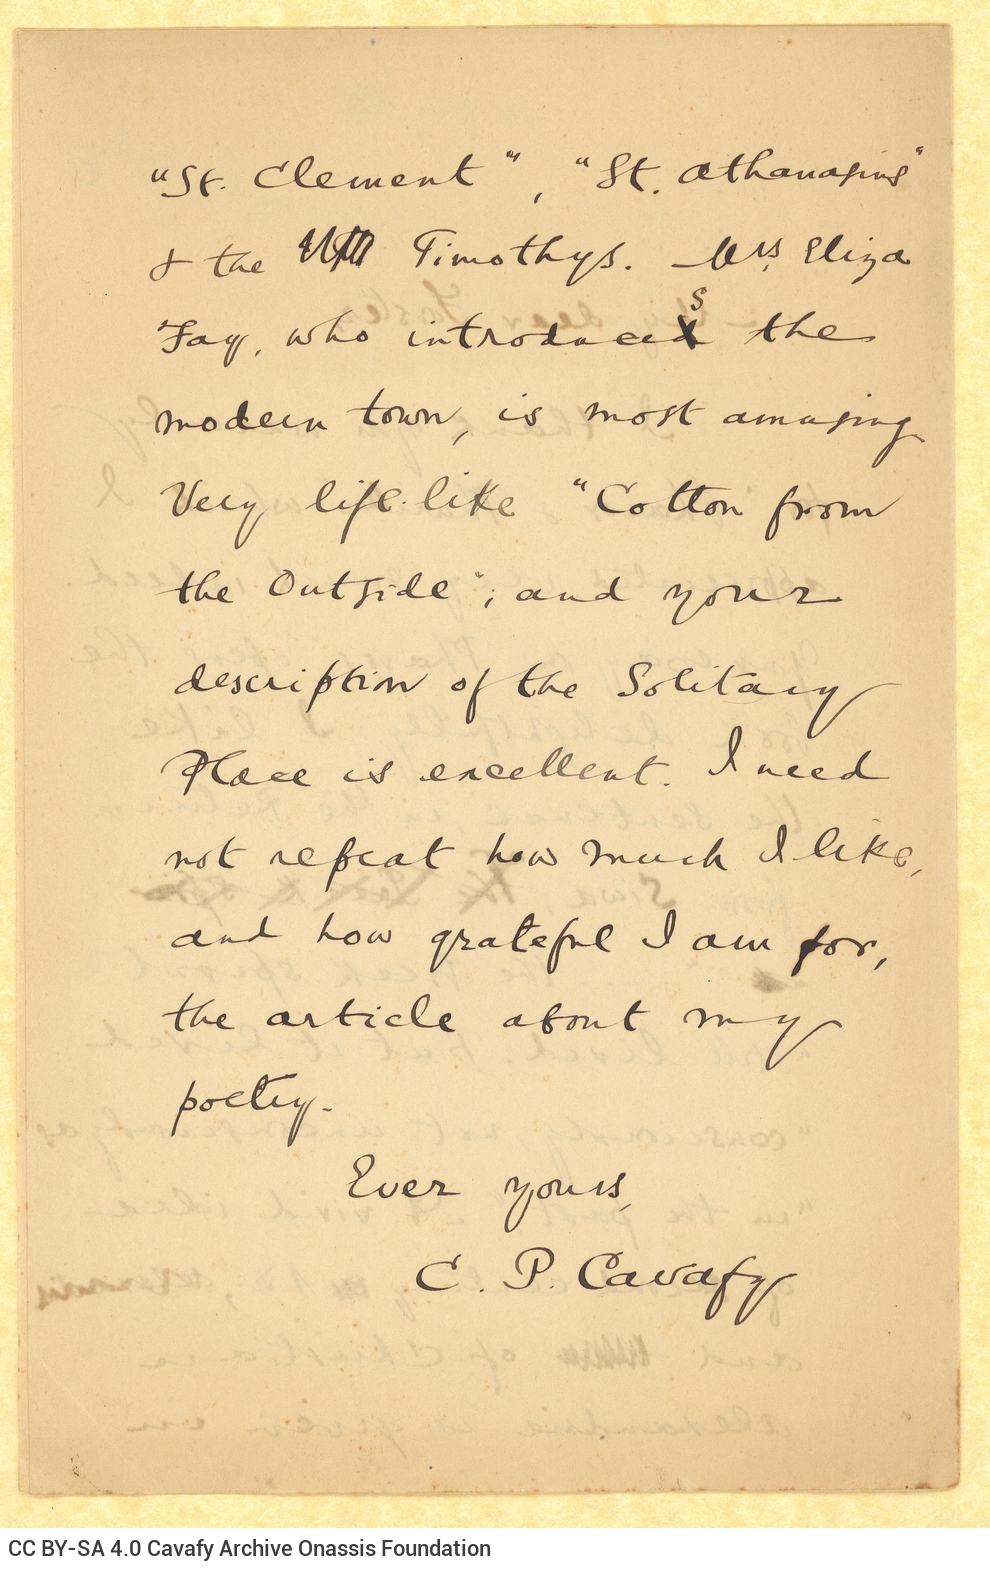 "St. Clement", "St. Athanasius"
& the Timothys. Mrs. Eliza
Fay, who introduces the
modern town, is most amusing.
Very life-like "Cotton from
the Outside"; and your
description of the Solitary
Place is excellent. I need
not repeat how much I like,
and how grateful I am for,
the article about my
poetry.
Ever yours,
C. P. Cavafy
CC BY-SA 4.0 Cavafy Archive Onassis Foundation